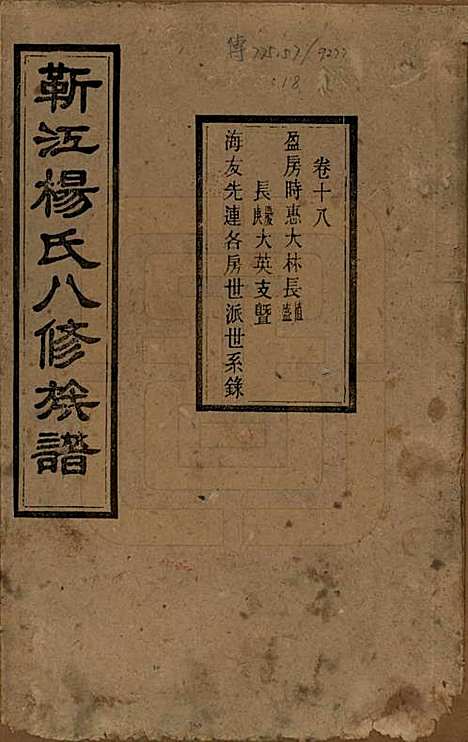 傳 725.57/9277
:18
卷十八
盈房時惠大林長植盛
長慶大英支暨
海友先連各房世派世系錄
靳江楊氏八修族譜